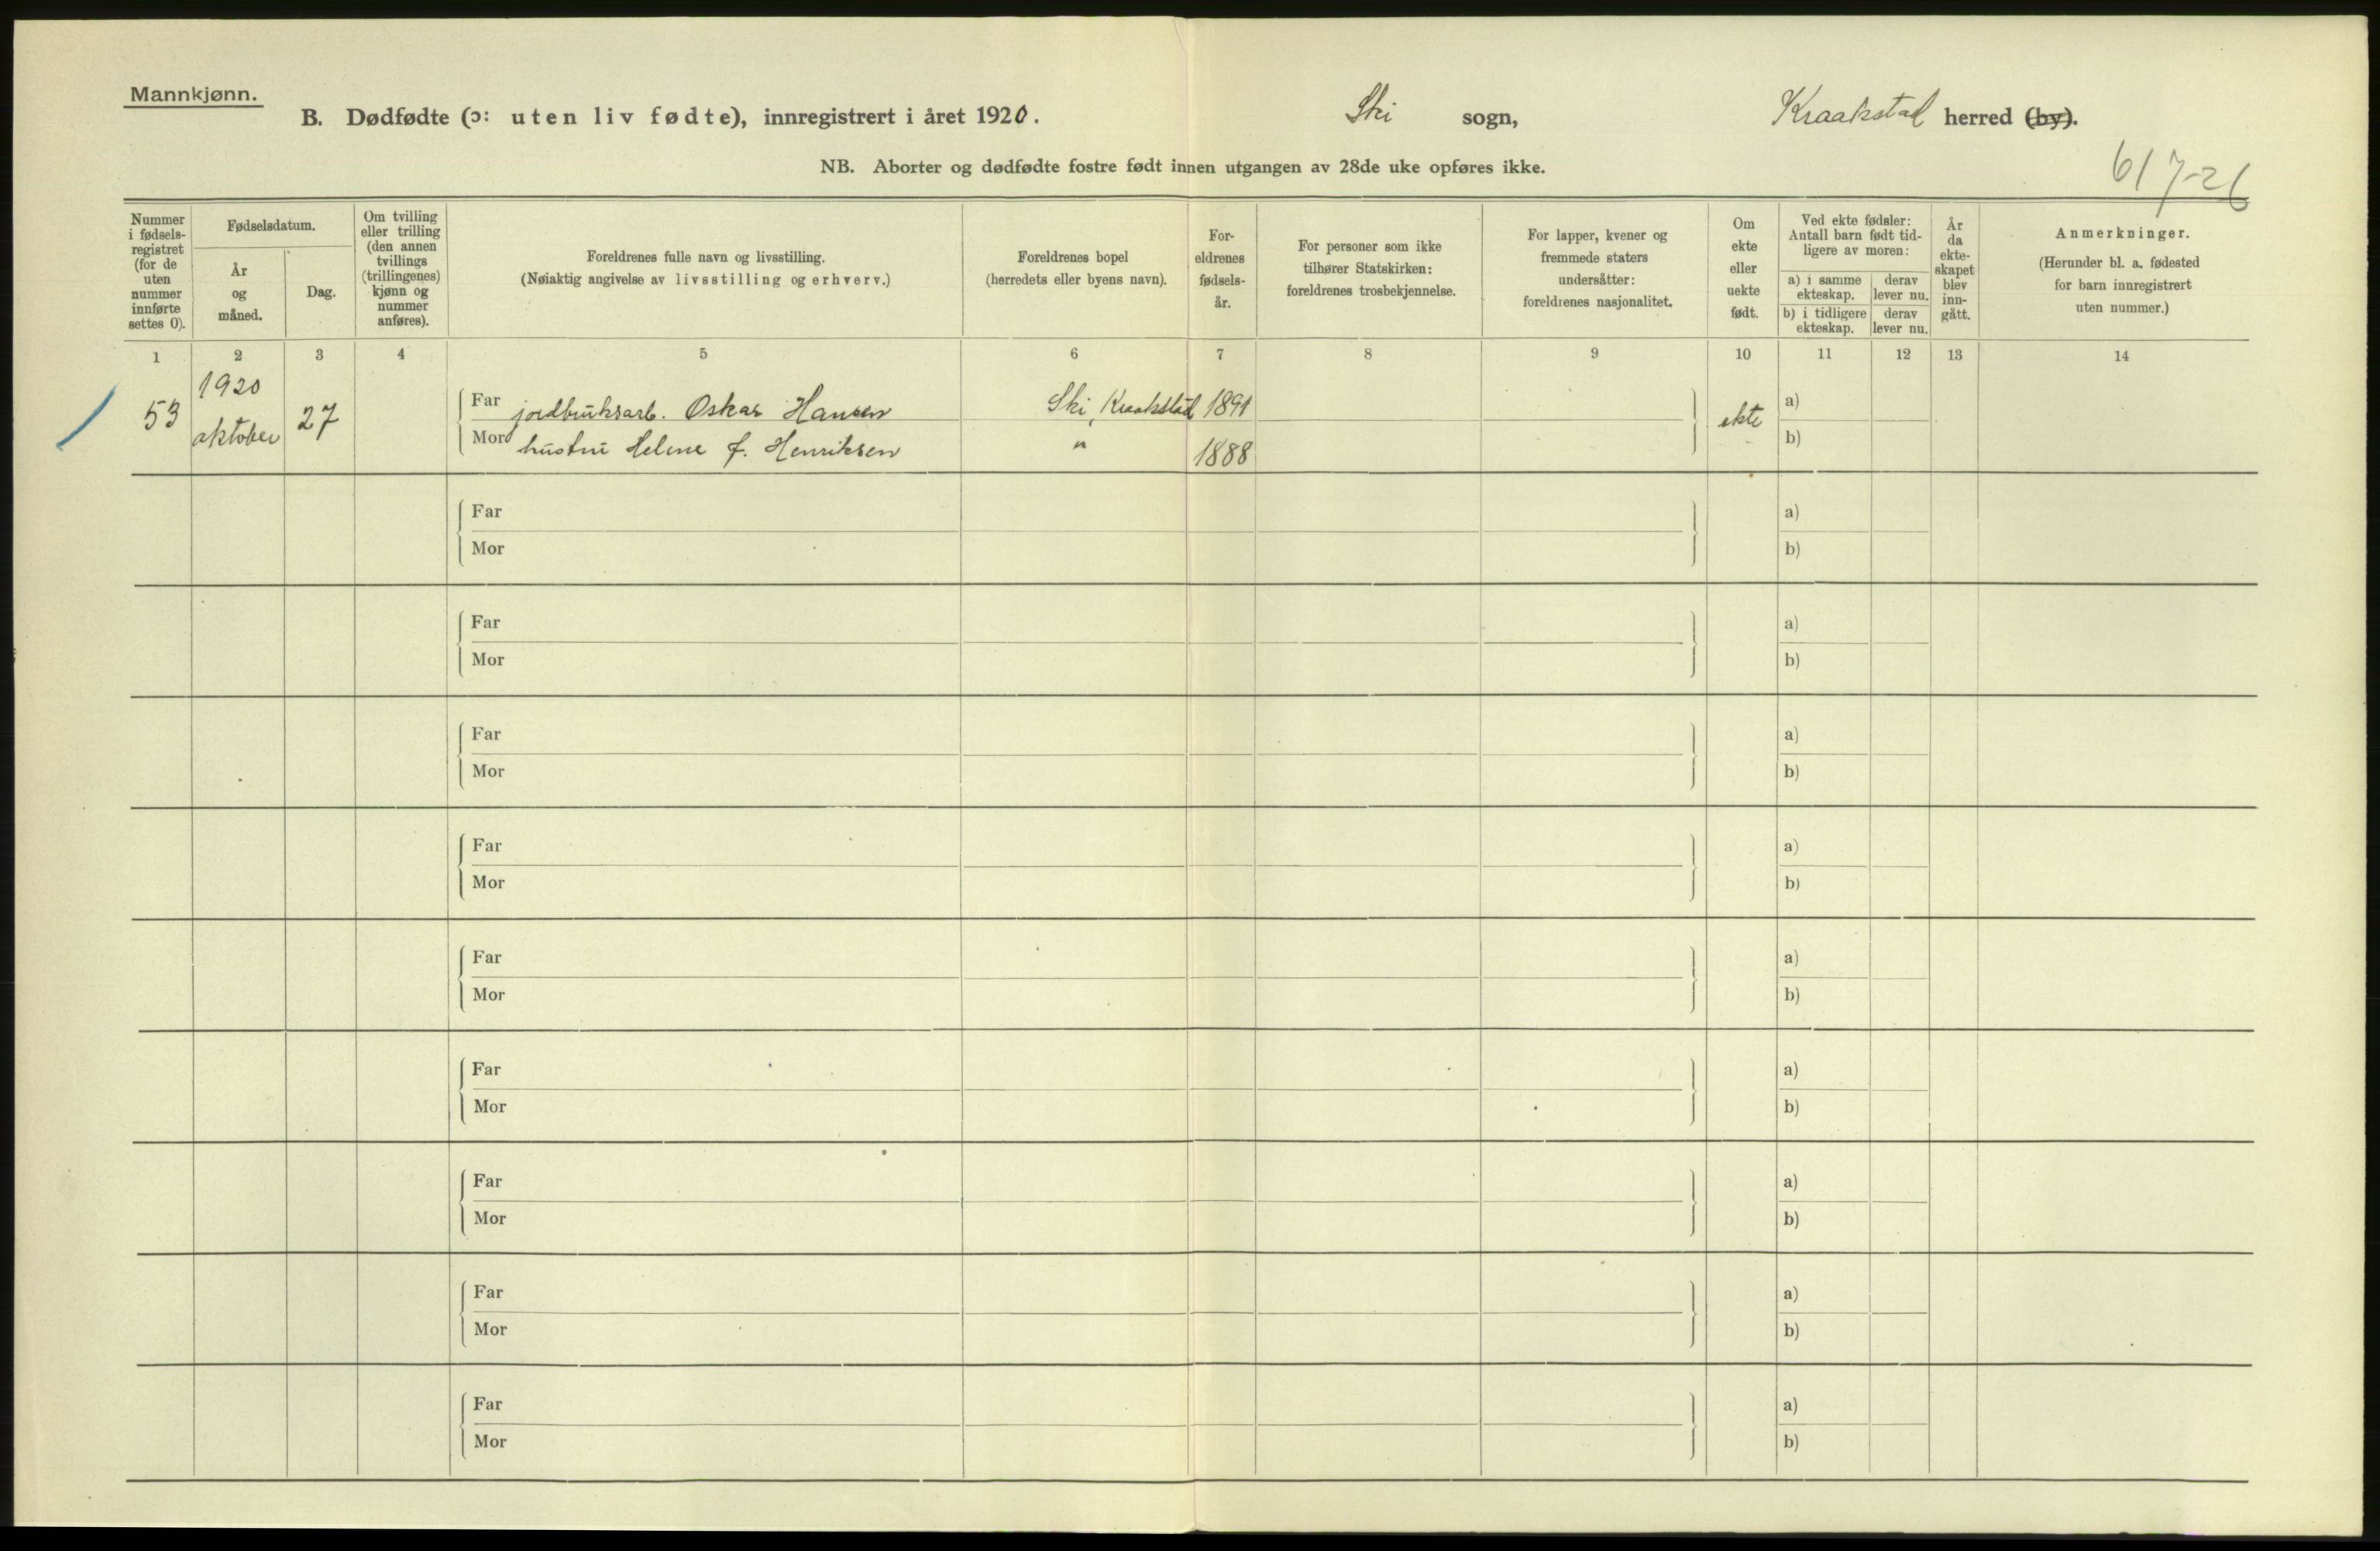 Mannkjønn.
B. Dødfødte (ɔ: uten liv fødte), innregistrert i året 1920. Ski sogn, Kraakstad herred (by).
NB. Aborter og dødfødte fostre født innen utgangen av 28de uke opføres ikke.
617-26
Nummer
i fødsels-
registret
(for de
uten
nummer
innførte
settes 0).
Fødselsdatum.
År
og
måned.
Dag.
Om tvilling
eller trilling
(den annen
tvillings
(trillingenes)
kjønn og
nummer
anføres).
Foreldrenes fulle navn og livsstilling.
(Nøiaktig angivelse av livsstilling og erhverv.)
Foreldrenes bopel
(herredets eller byens navn).
For-
eldrenes
fødsels-
år.
For personer som ikke
tilhører Statskirken:
foreldrenes trosbekjennelse.
For lapper, kvener og
fremmede staters
undersåtter:
foreldrenes nasjonalitet.
Om
ekte
eller
uekte
født.
Ved ekte fødsler:
Antall barn født tid-
ligere av moren:
a) i samme
ekteskap.
derav
lever nu.
b) i tidligere
ekteskap.
derav
lever nu.
År
da
ekte-
skapet
blev
inn-
gått.
Anmerkninger.
(Herunder bl. a. fødested
for barn innregistrert
uten nummer.)
1 2 3 4 5 6 7 8 9 10 11 12 13 14
53
1920
oktober
27
Far jordbruksarb. Oskar Hansen Ski, Kraakstad 1891
Mor hustru Helene f. Henriksen " 1888
ekte
a)
b)
Far a)
Mor b)
Far a)
Mor b)
Far a)
Mor b)
Far a)
Mor b)
Far a)
Mor b)
Far a)
Mor b)
Far a)
Mor b)
Far a)
Mor b)
Far a)
Mor b)